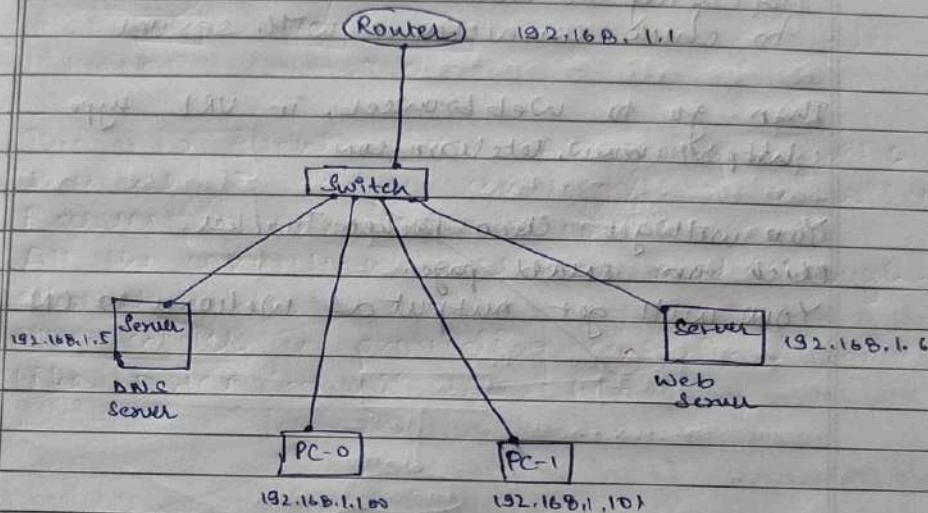 Router 192.168.1.1
Switch
Server
192.168.1.5
DNS
Server
Server
192.168.1.6
Web
Server
PC-0
192.168.1.100
PC-1
192.168.1.101